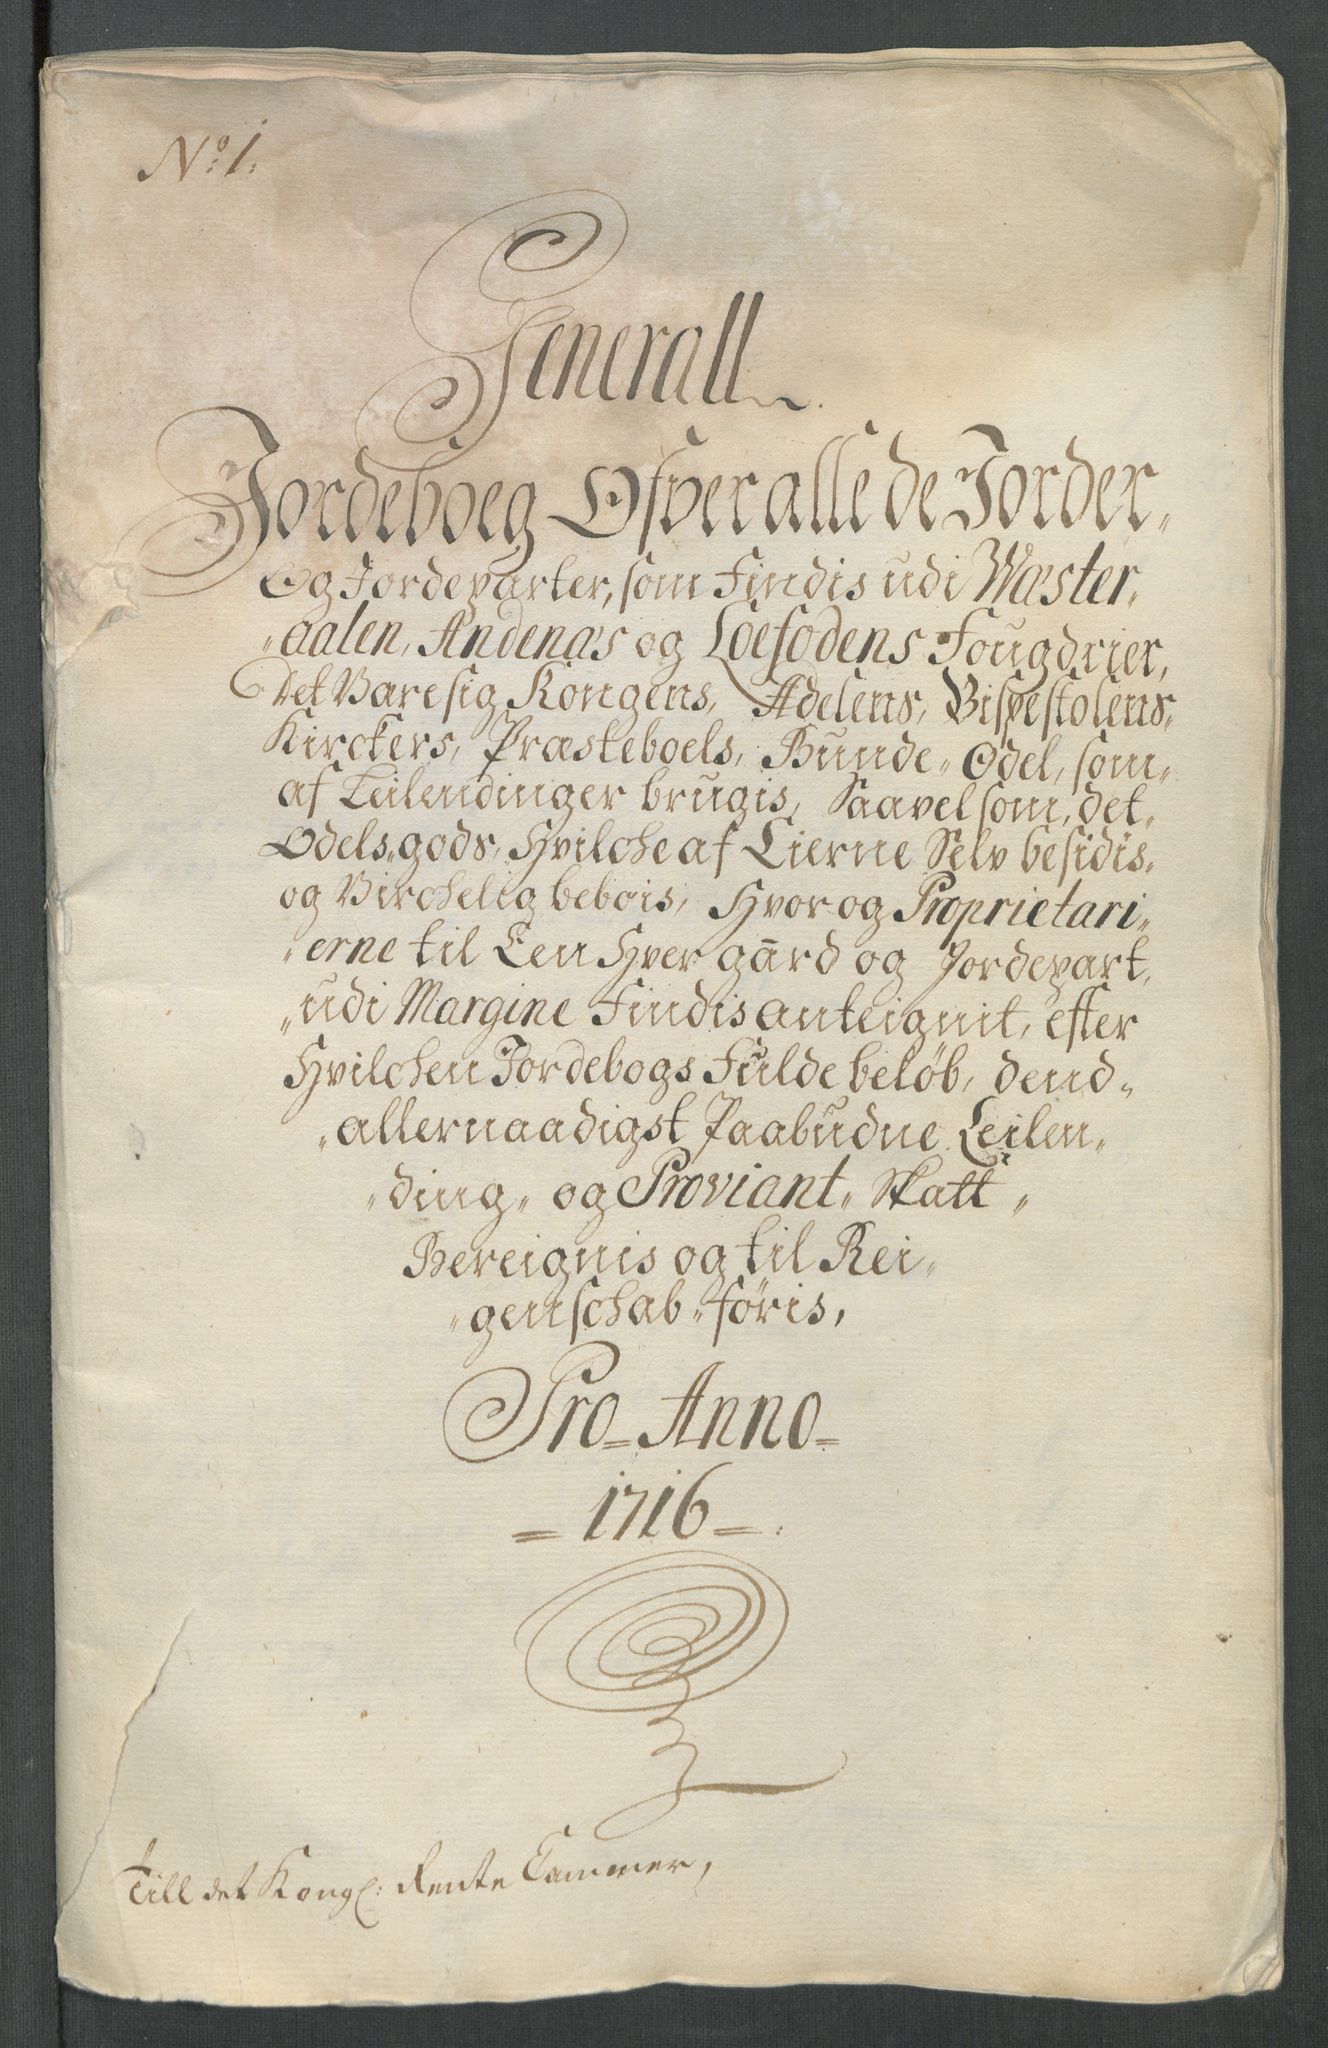 No: 1.
Generall
Jordeboeg Ofver alle de Jorder,
Og Jordeparter, som Findis udi Wæster,
„aalen, Andenæs og Loefodens Fougdrier,
Det Være sig Kongens, Adelens, Bispestolens,
Kirckers, Præsteboels, Bunde„ Odel, som„
af Leilendinger brugis, Saavelsom, det„
Odels„gods, Hvilche af Eierne Selv besidis,
og Virchelig bebois, Hvor og Proprietari„
„erne til Een Hver gaard og Jordepart,
„udi Margine Findis anteignit, efter
Hvilchen Jordebogs Fulde beløb, dend„
„allernaadigst Paabudne Leilen„
„ding„ og Proviant„ Skatt„
Bereignis og til Rei„
„genschab„ føris,
Pro= Anno=
= 1716 =:
Till det Kongl: Rente Cammer,